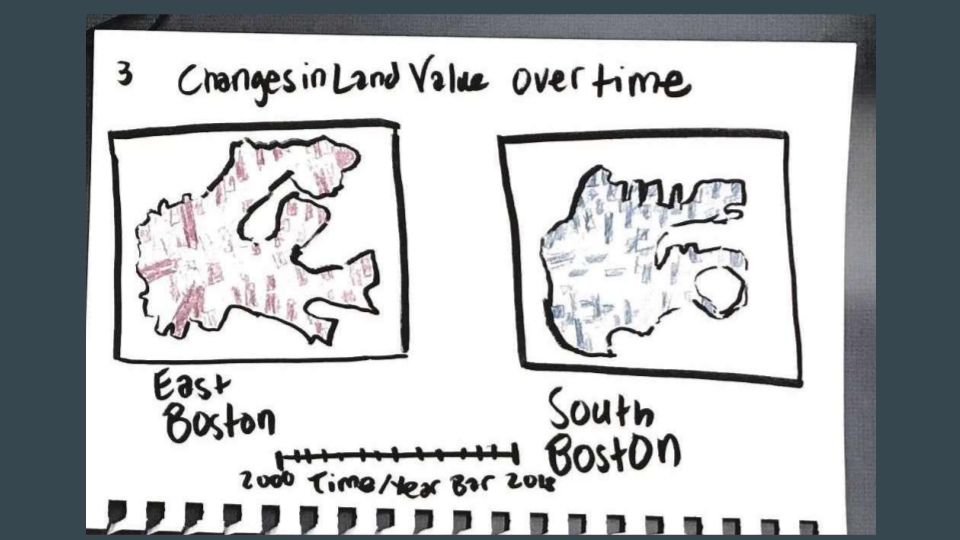 3 Changes in Land Value over time
East
Boston
South
Boston
2000 Time/Year Bar 2018